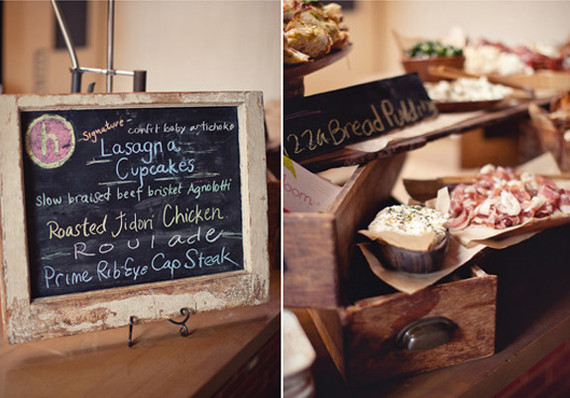 h
Signature
confit baby artichoke
Lasagna
Cupcakes
slow braised beef brisket Agnolotti
Roasted Jidori Chicken
Roulade
Prime RibEye Cap Steak
zza Bread Pudding
loom